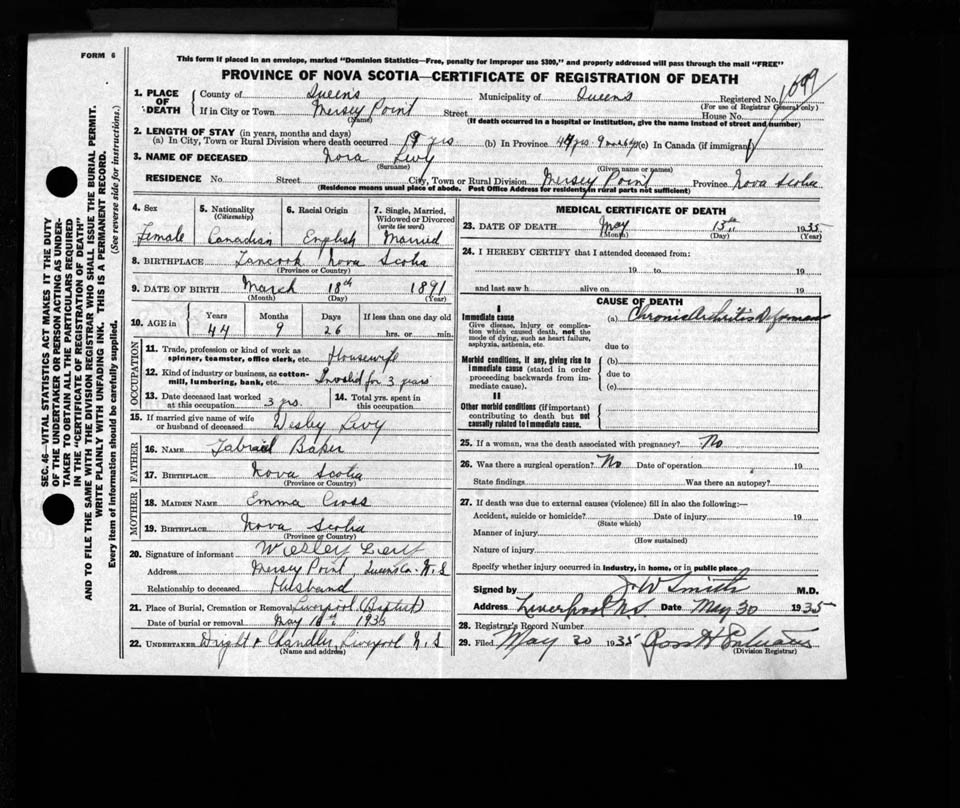 FORM 6
This form if placed in an envelope, marked "Dominion Statistics—Free, penalty for improper use $300," and properly addressed will pass through the mail "FREE"
PROVINCE OF NOVA SCOTIA—CERTIFICATE OF REGISTRATION OF DEATH
1. PLACE OF DEATH County of Queens Municipality of Queens Registered No. 1099
(For use of Registrar General only)
If in City or Town Mersey Point Street House No.
(Name) (If death occurred in a hospital or institution, give the name instead of street and number)
2. LENGTH OF STAY (in years, months and days)
(a) In City, Town or Rural Division where death occurred 19 yrs (b) In Province 44 yrs. 9 (c) In Canada (if immigrant)
3. NAME OF DECEASED Nora Levy
(Surname) (Given name or names)
RESIDENCE No. Street City, Town or Rural Division Mersey Point Province Nova Scotia
(Residence means usual place of abode. Post Office Address for residents in rural parts not sufficient)
4. Sex 5. Nationality (Citizenship) 6. Racial Origin 7. Single, Married, Widowed or Divorced (write the word)
Female Canadian English Married
8. BIRTHPLACE Tancook Nova Scotia
(Province or Country)
9. DATE OF BIRTH March 18th 1891
(Month) (Day) (Year)
10. AGE in Years Months Days If less than one day old
44 9 26 hrs. or min.
OCCUPATION
11. Trade, profession or kind of work as spinner, teamster, office clerk, etc. Housewife
12. Kind of industry or business, as cotton-mill, lumbering, bank, etc. Invalid for 3 years
13. Date deceased last worked at this occupation 3 yrs. 14. Total yrs. spent in this occupation
15. If married give name of wife or husband of deceased Wesley Levy
FATHER
16. NAME Gabriel Baker
17. BIRTHPLACE Nova Scotia
(Province or Country)
MOTHER
18. MAIDEN NAME Emma Cross
19. BIRTHPLACE Nova Scotia
(Province or Country)
20. Signature of informant Wesley Levy
Address Mersey Point, Queens Co. N.S
Relationship to deceased Husband
21. Place of Burial, Cremation or Removal Liverpool (Baptist)
Date of burial or removal May 1935
22. UNDERTAKER Wright & Chandler, Liverpool N.S
(Name and address)
MEDICAL CERTIFICATE OF DEATH
23. DATE OF DEATH May 13th 1935
(Month) (Day) (Year)
24. I HEREBY CERTIFY that I attended deceased from:
19 to 19
and last saw h alive on 19
CAUSE OF DEATH
I
Immediate cause (a) Chronic Arthritis Deformans
Give disease, injury or complication which caused death, not the mode of dying, such as heart failure, asphyxia, asthenia, etc.
due to
Morbid conditions, if any, giving rise to immediate cause (stated in order proceeding backwards from immediate cause).
(b)
due to
(c)
II
Other morbid conditions (if important) contributing to death but not causally related to immediate cause.
25. If a woman, was the death associated with pregnancy? No
26. Was there a surgical operation? No Date of operation 19
State findings Was there an autopsy?
27. If death was due to external causes (violence) fill in also the following:—
Accident, suicide or homicide? Date of injury 19
(State which)
Manner of injury
(How sustained)
Nature of injury
Specify whether injury occurred in industry, in home, or in public place
Signed by J W Smith M.D.
Address Liverpool NS Date May 30 1935
28. Registrar's Record Number
29. Filed May 30 1935
(Division Registrar)
SEC. 46—VITAL STATISTICS ACT MAKES IT THE DUTY
OF THE UNDERTAKER OR PERSON ACTING AS UNDERTAKER
TO OBTAIN ALL THE PARTICULARS REQUIRED
IN THE "CERTIFICATE OF REGISTRATION OF DEATH"
AND TO FILE THE SAME WITH THE DIVISION REGISTRAR WHO SHALL ISSUE THE BURIAL PERMIT.
WRITE PLAINLY WITH UNFADING INK. THIS IS A PERMANENT RECORD.
Every item of information should be carefully supplied. (See reverse side for instructions.)